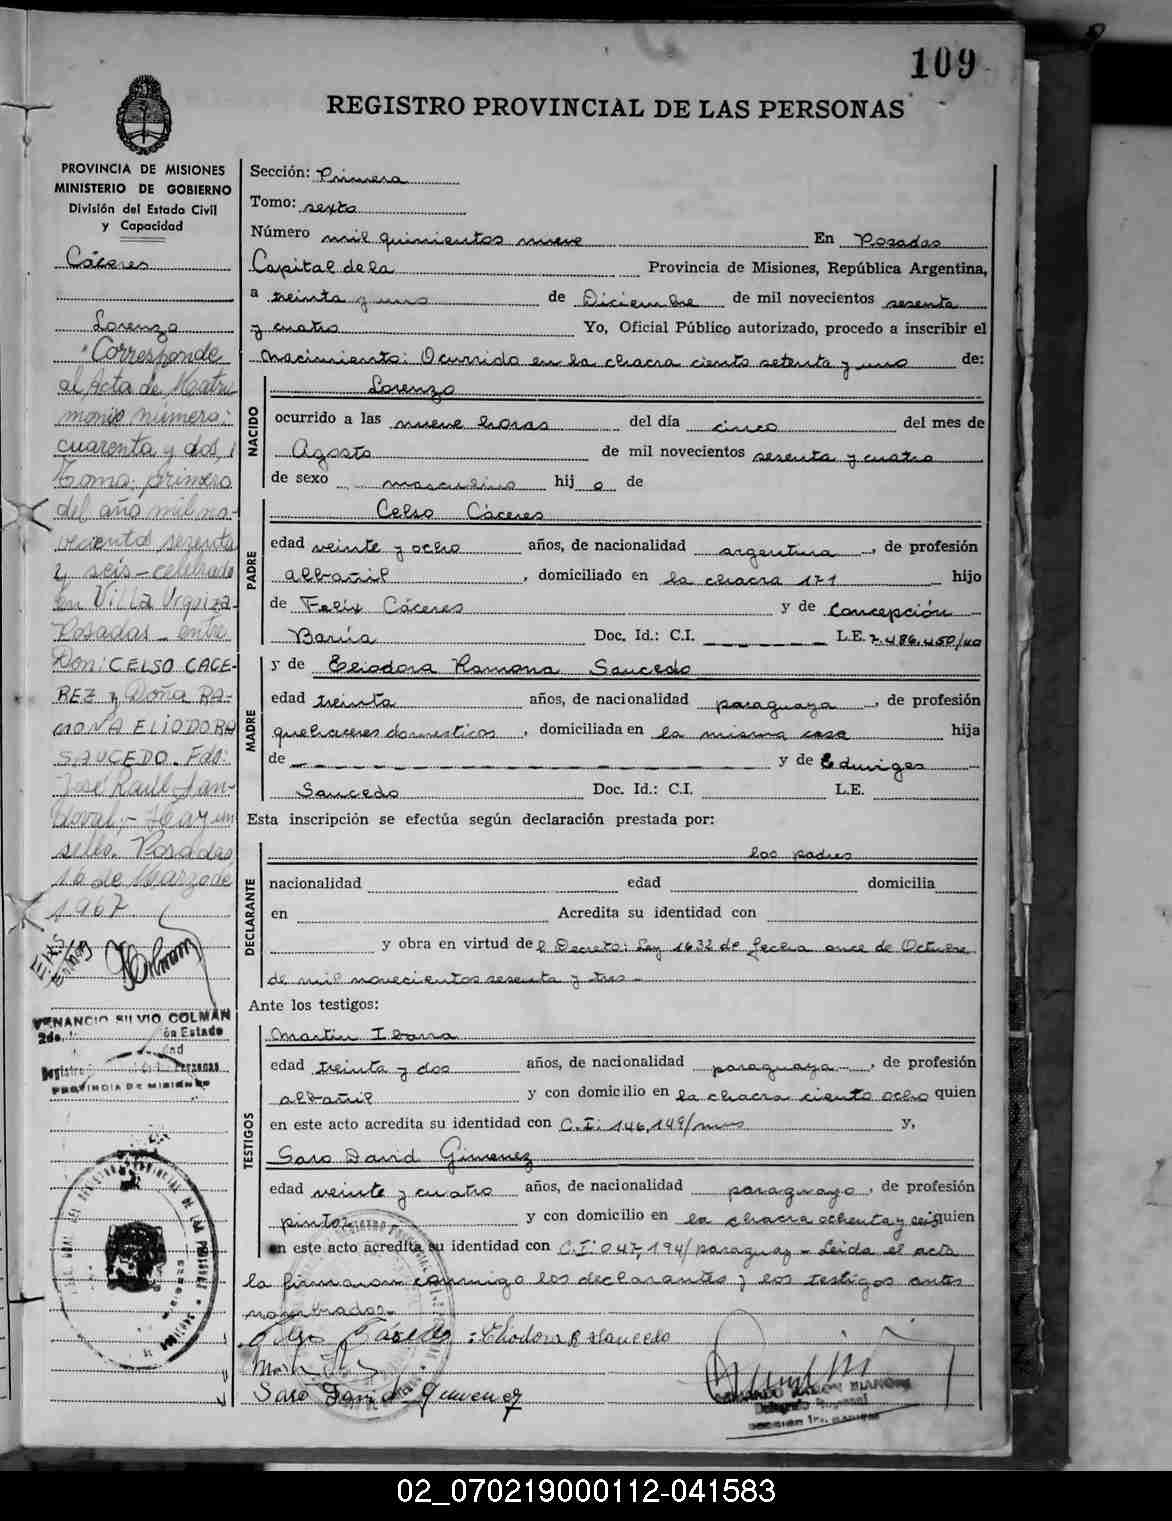 109
REGISTRO PROVINCIAL DE LAS PERSONAS
PROVINCIA DE MISIONES
MINISTERIO DE GOBIERNO
División del Estado Civil
y Capacidad
Cáceres
Lorenzo
"Corresponde
al Acta de Matri
monio número:
cuarenta y dos,
Tomo: primero
del año mil no-
vecientos sesenta
y seis - celebrado
en Villa Urquiza-
Posadas - entre
Don: CELSO CACE-
REZ y Doña RA-
MONA ELIODORA
SAUCEDO. Fdo:
José Raúl San-
doval.- Hay un
sello. Posadas
16 de Marzo de
1967.
VENANCIO SILVIO COLMAN
Sección: Primera
Tomo: sexto
Número mil quinientos nueve En Posadas
Capital de la Provincia de Misiones, República Argentina,
a treinta y uno de Diciembre de mil novecientos sesenta
y cuatro Yo, Oficial Público autorizado, procedo a inscribir el
Nacimiento: Ocurrido en la chacra ciento setenta y uno de:
NACIDO
Lorenzo
ocurrido a las nueve horas del día cinco del mes de
Agosto de mil novecientos sesenta y cuatro
de sexo masculino hijo de
PADRE
Celso Cáceres
edad veinte y ocho años, de nacionalidad argentina, de profesión
albañil, domiciliado en la chacra 171 hijo
de Felix Cáceres y de Concepción
Barúa Doc. Id.: C.I. L.E. 7.486.450/
MADRE
y de Eliodora Ramona Saucedo
edad treinta años, de nacionalidad paraguaya, de profesión
quehaceres domesticos, domiciliada en la misma casa hija
de y de Eduviges
Saucedo Doc. Id.: C.I. L.E.
Esta inscripción se efectúa según declaración prestada por:
DECLARANTE
los padres
nacionalidad edad domicilia
en Acredita su identidad con
y obra en virtud del Decreto: Ley 1632 de fecha once de Octubre
de mil novecientos sesenta y tres-
Ante los testigos:
TESTIGOS
Martin Ibarra
edad treinta y dos años, de nacionalidad paraguaya, de profesión
albañil y con domicilio en la chacra ciento ocho quien
en este acto acredita su identidad con C.I: 146,149/mnes y,
Saro David Gimenez
edad veinte y cuatro años, de nacionalidad paraguayo, de profesión
pintor y con domicilio en la chacra ochenta y seis quien
en este acto acredita su identidad con C.I: 047,194/paraguay - Leida el acta
la firmaron conmigo los declarantes y los testigos antes
nombrados.-
Eliodora R Saucedo
Saro David Gimenez
02_070219000112-041583